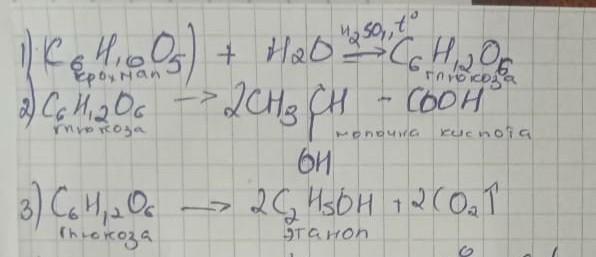 1) (C6H10O5) + H2O H2SO4, t° → C6H12O6
крохмал глюкоза
2) C6H12O6 → 2CH3CH - COOH
глюкоза молочна кислота
OH
3) C6H12O6 → 2C2H5OH + 2CO2↑
глюкоза этанол